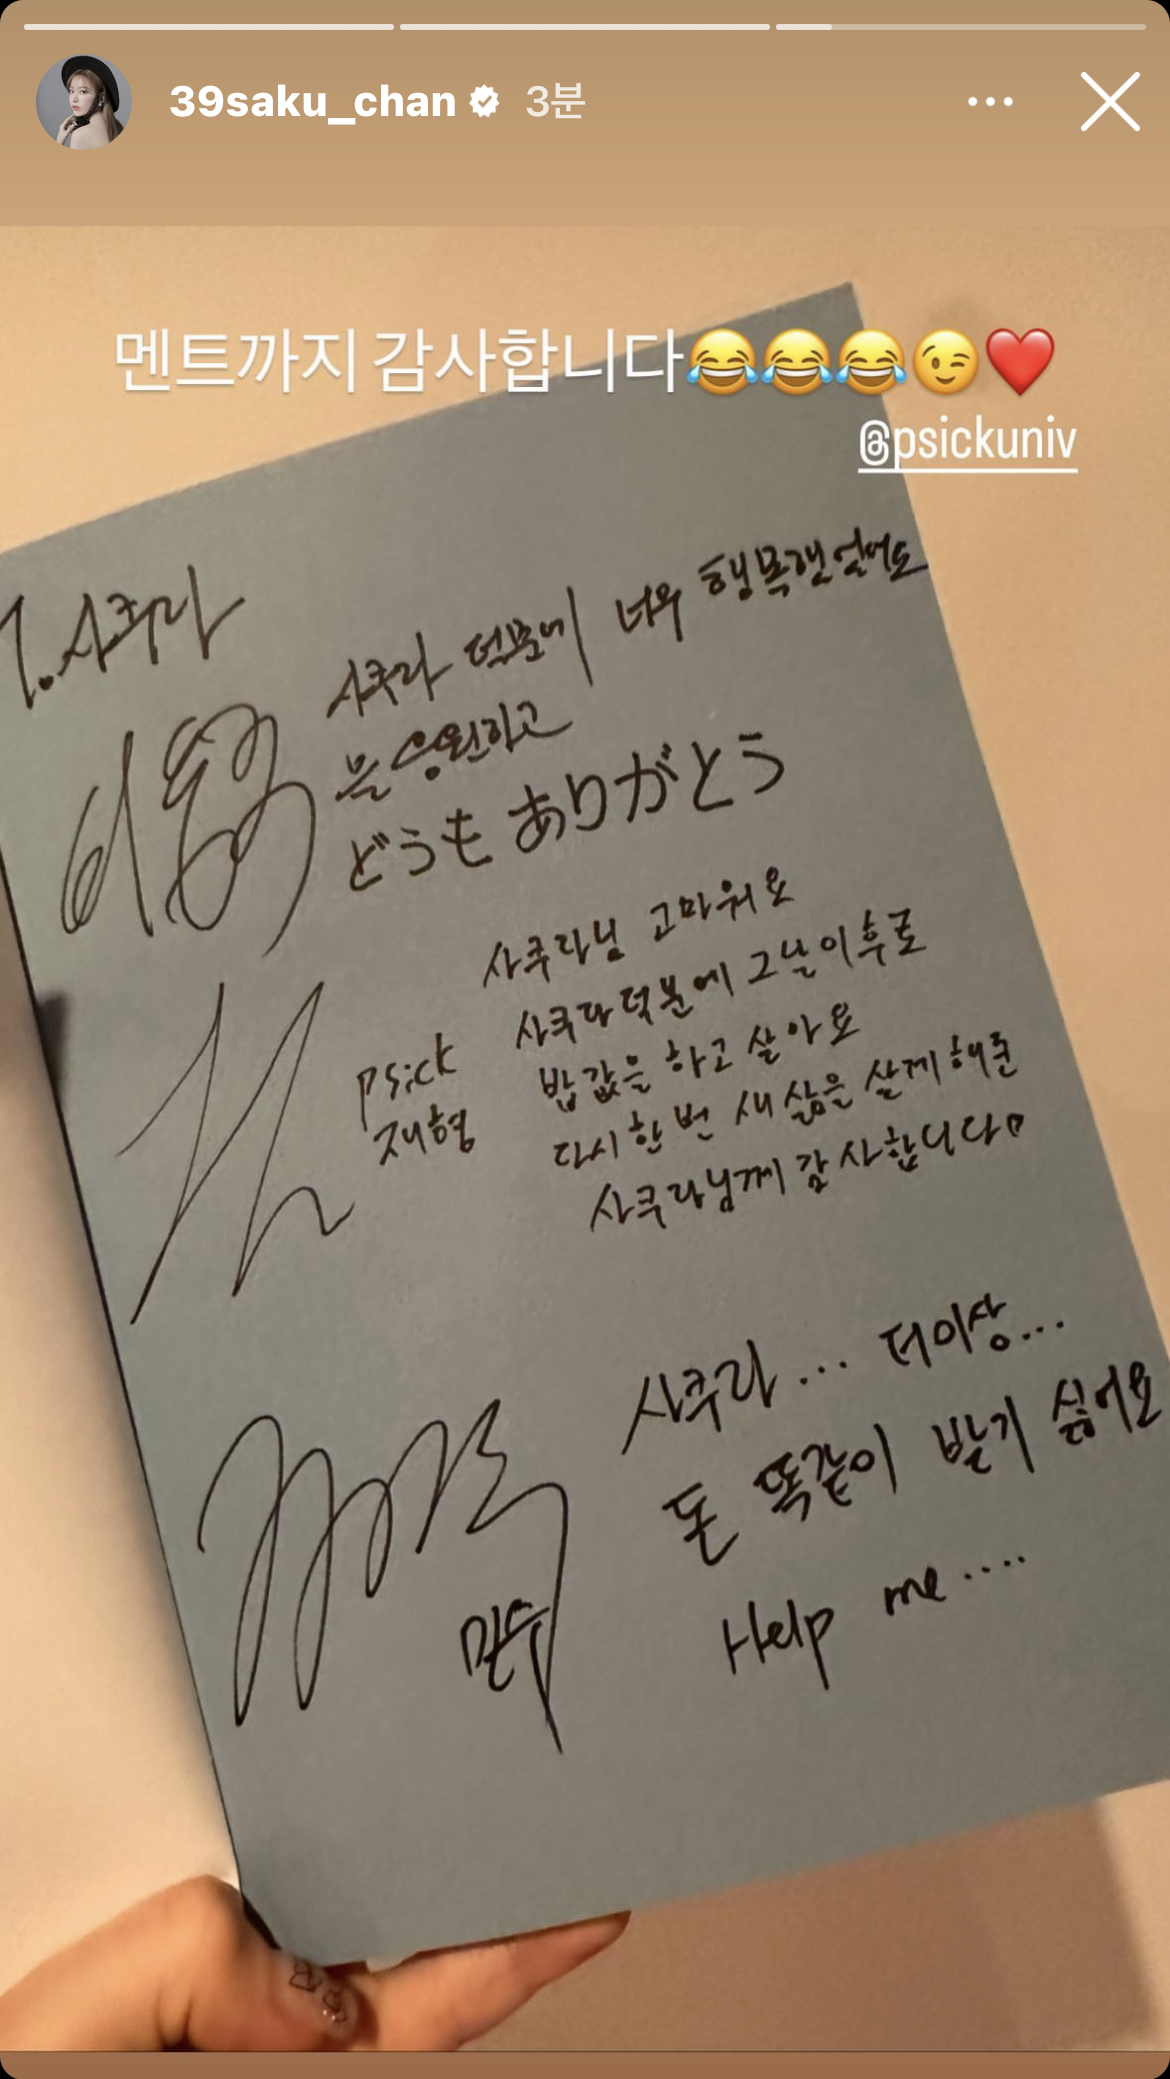 39saku_chan 3분
멘트까지 감사합니다😂😂😂😉❤️
@psickuniv
사쿠라
사쿠라 덕분에 너무 행복했었어도
응원하고
どうも ありがとう
사쿠라님 고마워요
사쿠라 덕분에 그날 이후로
psick
재형
밥값을 하고 살아요
다시 한 번 새 삶을 살게 해준
사쿠라님께 감사합니다
사쿠라... 더이상...
돈 똑같이 받기 싫어요
민수
Help me....